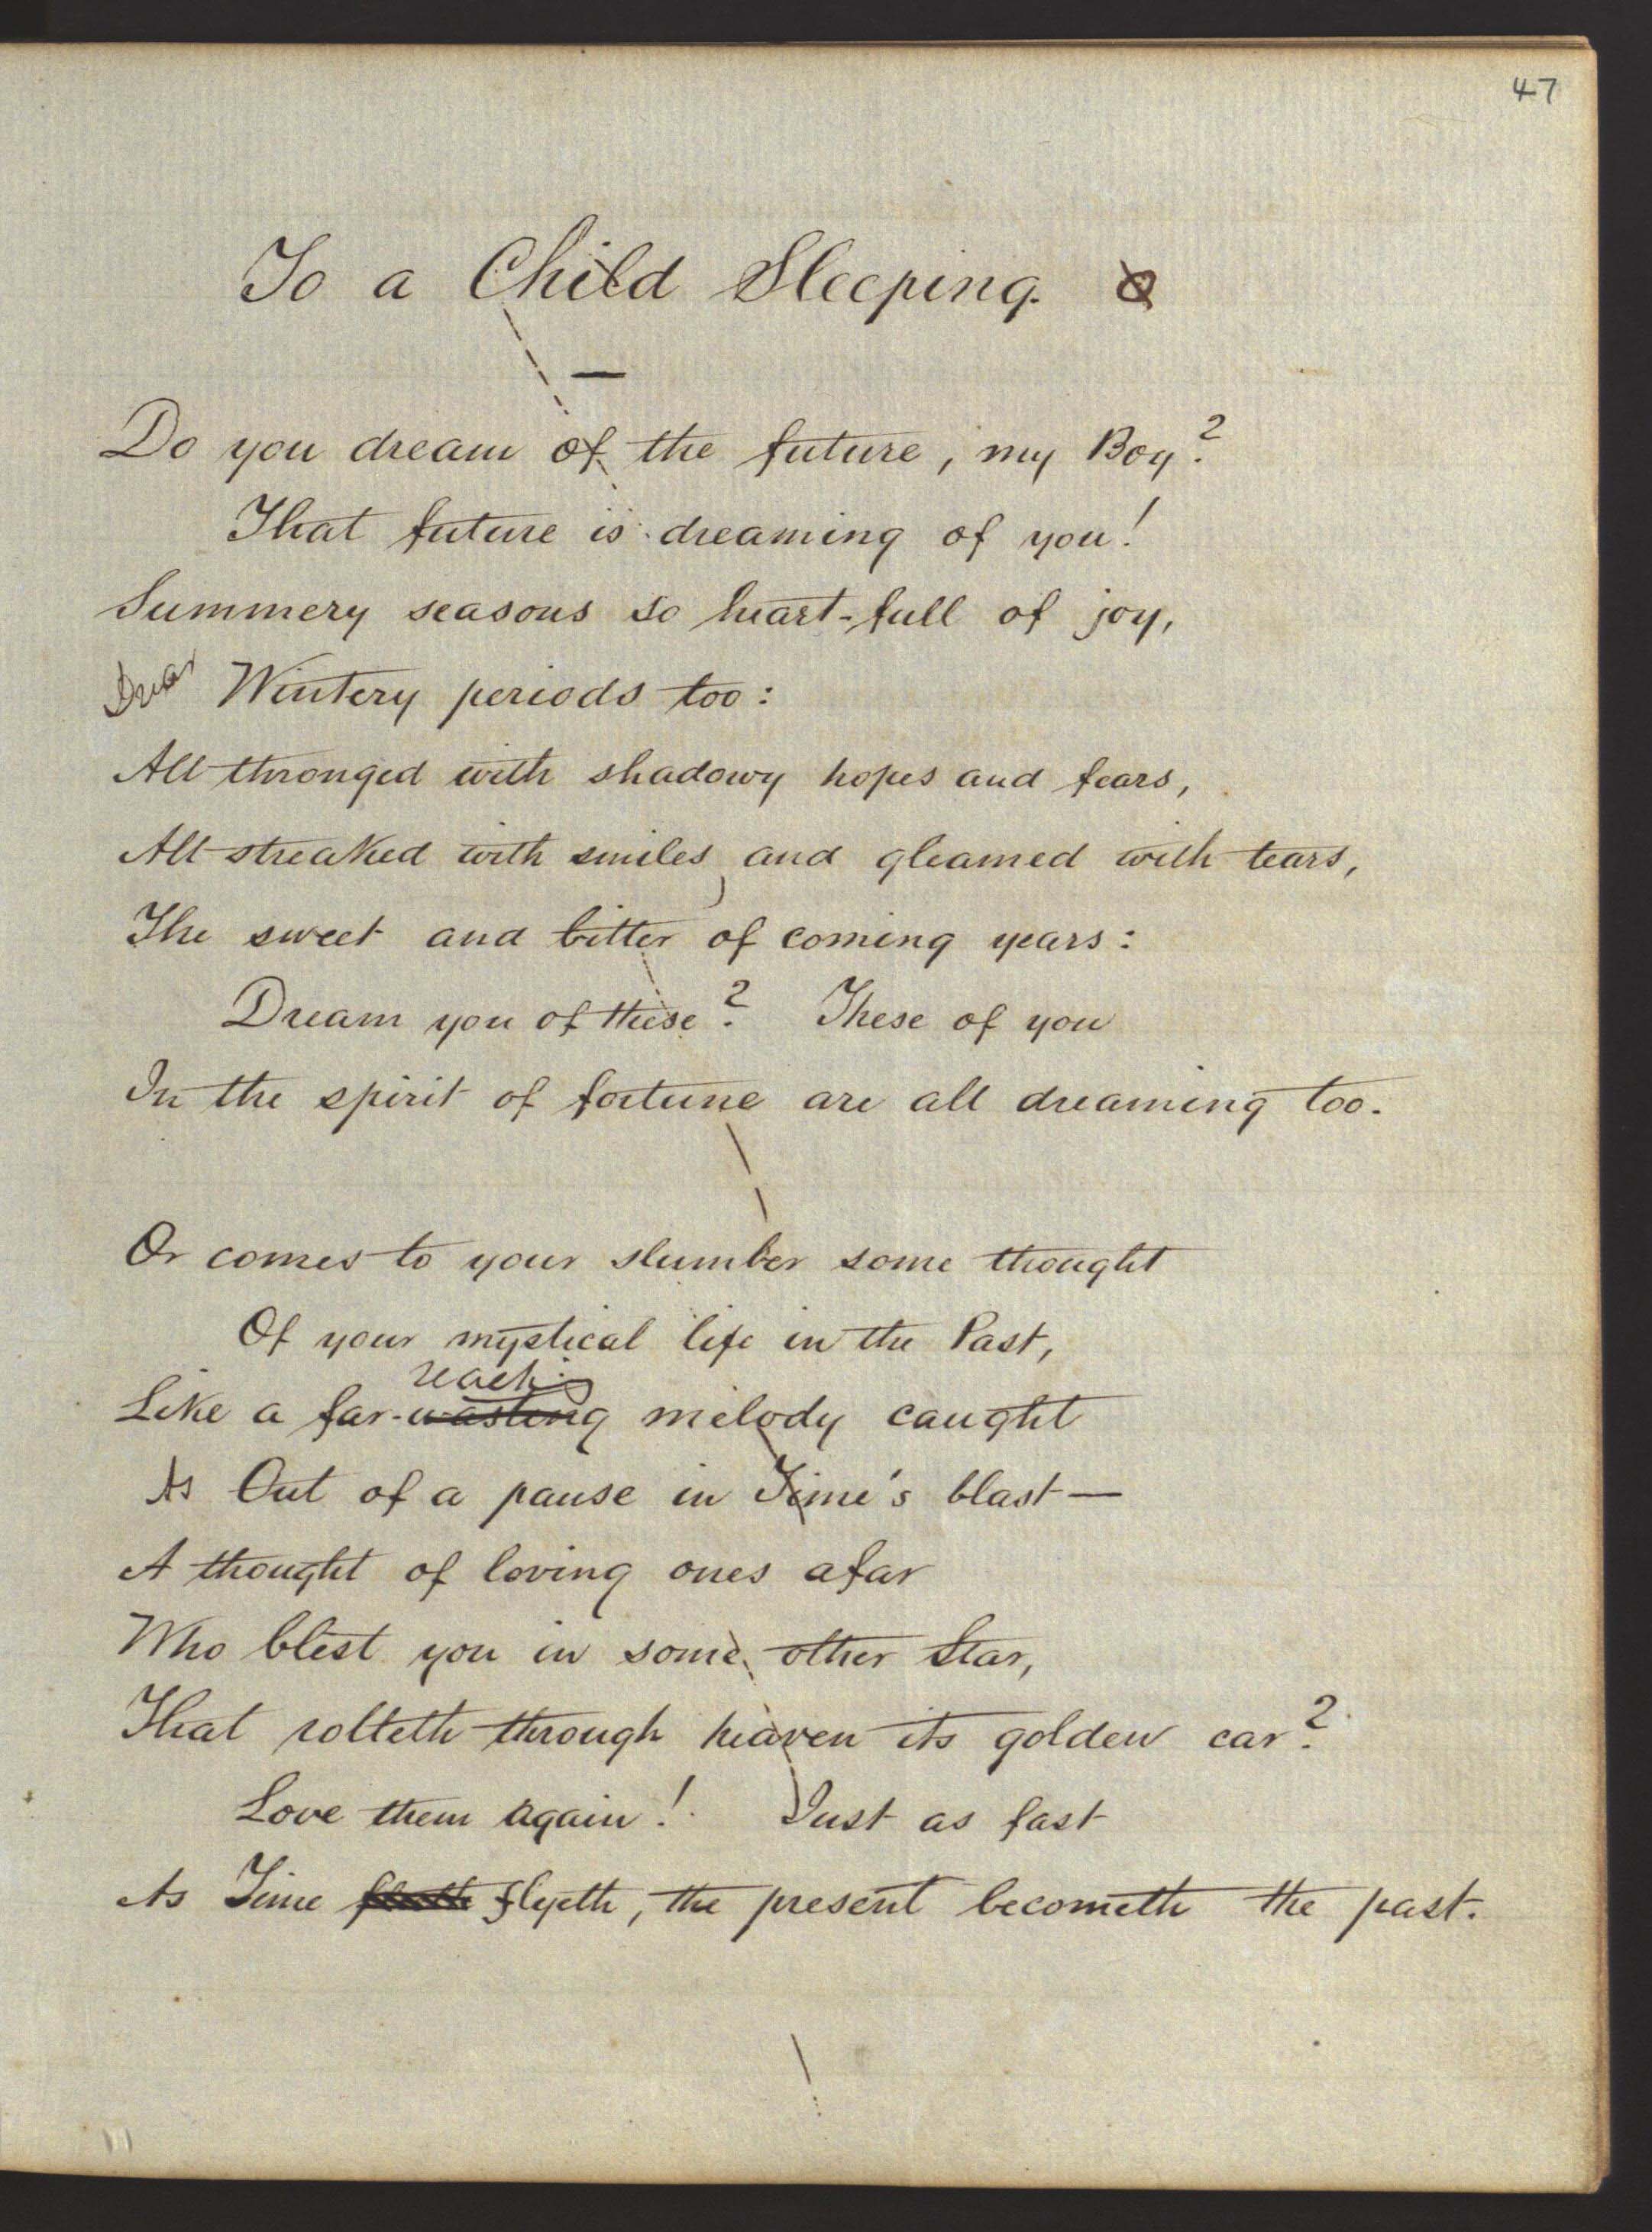 47
To a Child Sleeping.
Do you dream of the future, my Boy?
That future is dreaming of you!
Summery seasons so heart-full of joy,
Drear Wintery periods too:
All thronged with shadowy hopes and fears,
All streaked with smiles, and gleamed with tears,
The sweet and bitter of coming years:
Dream you of these? These of you
In the spirit of fortune are all dreaming too.
Or comes to your slumber some thought
Of your mystical life in the Past,
reaching
Like a far-wasting melody caught
As Out of a pause in Time's blast—
A thought of loving ones afar
Who blest you in some other Star,
That rolleth through heaven its golden car?
Love them again! Just as fast
As Time flyeth, the present becometh the past.